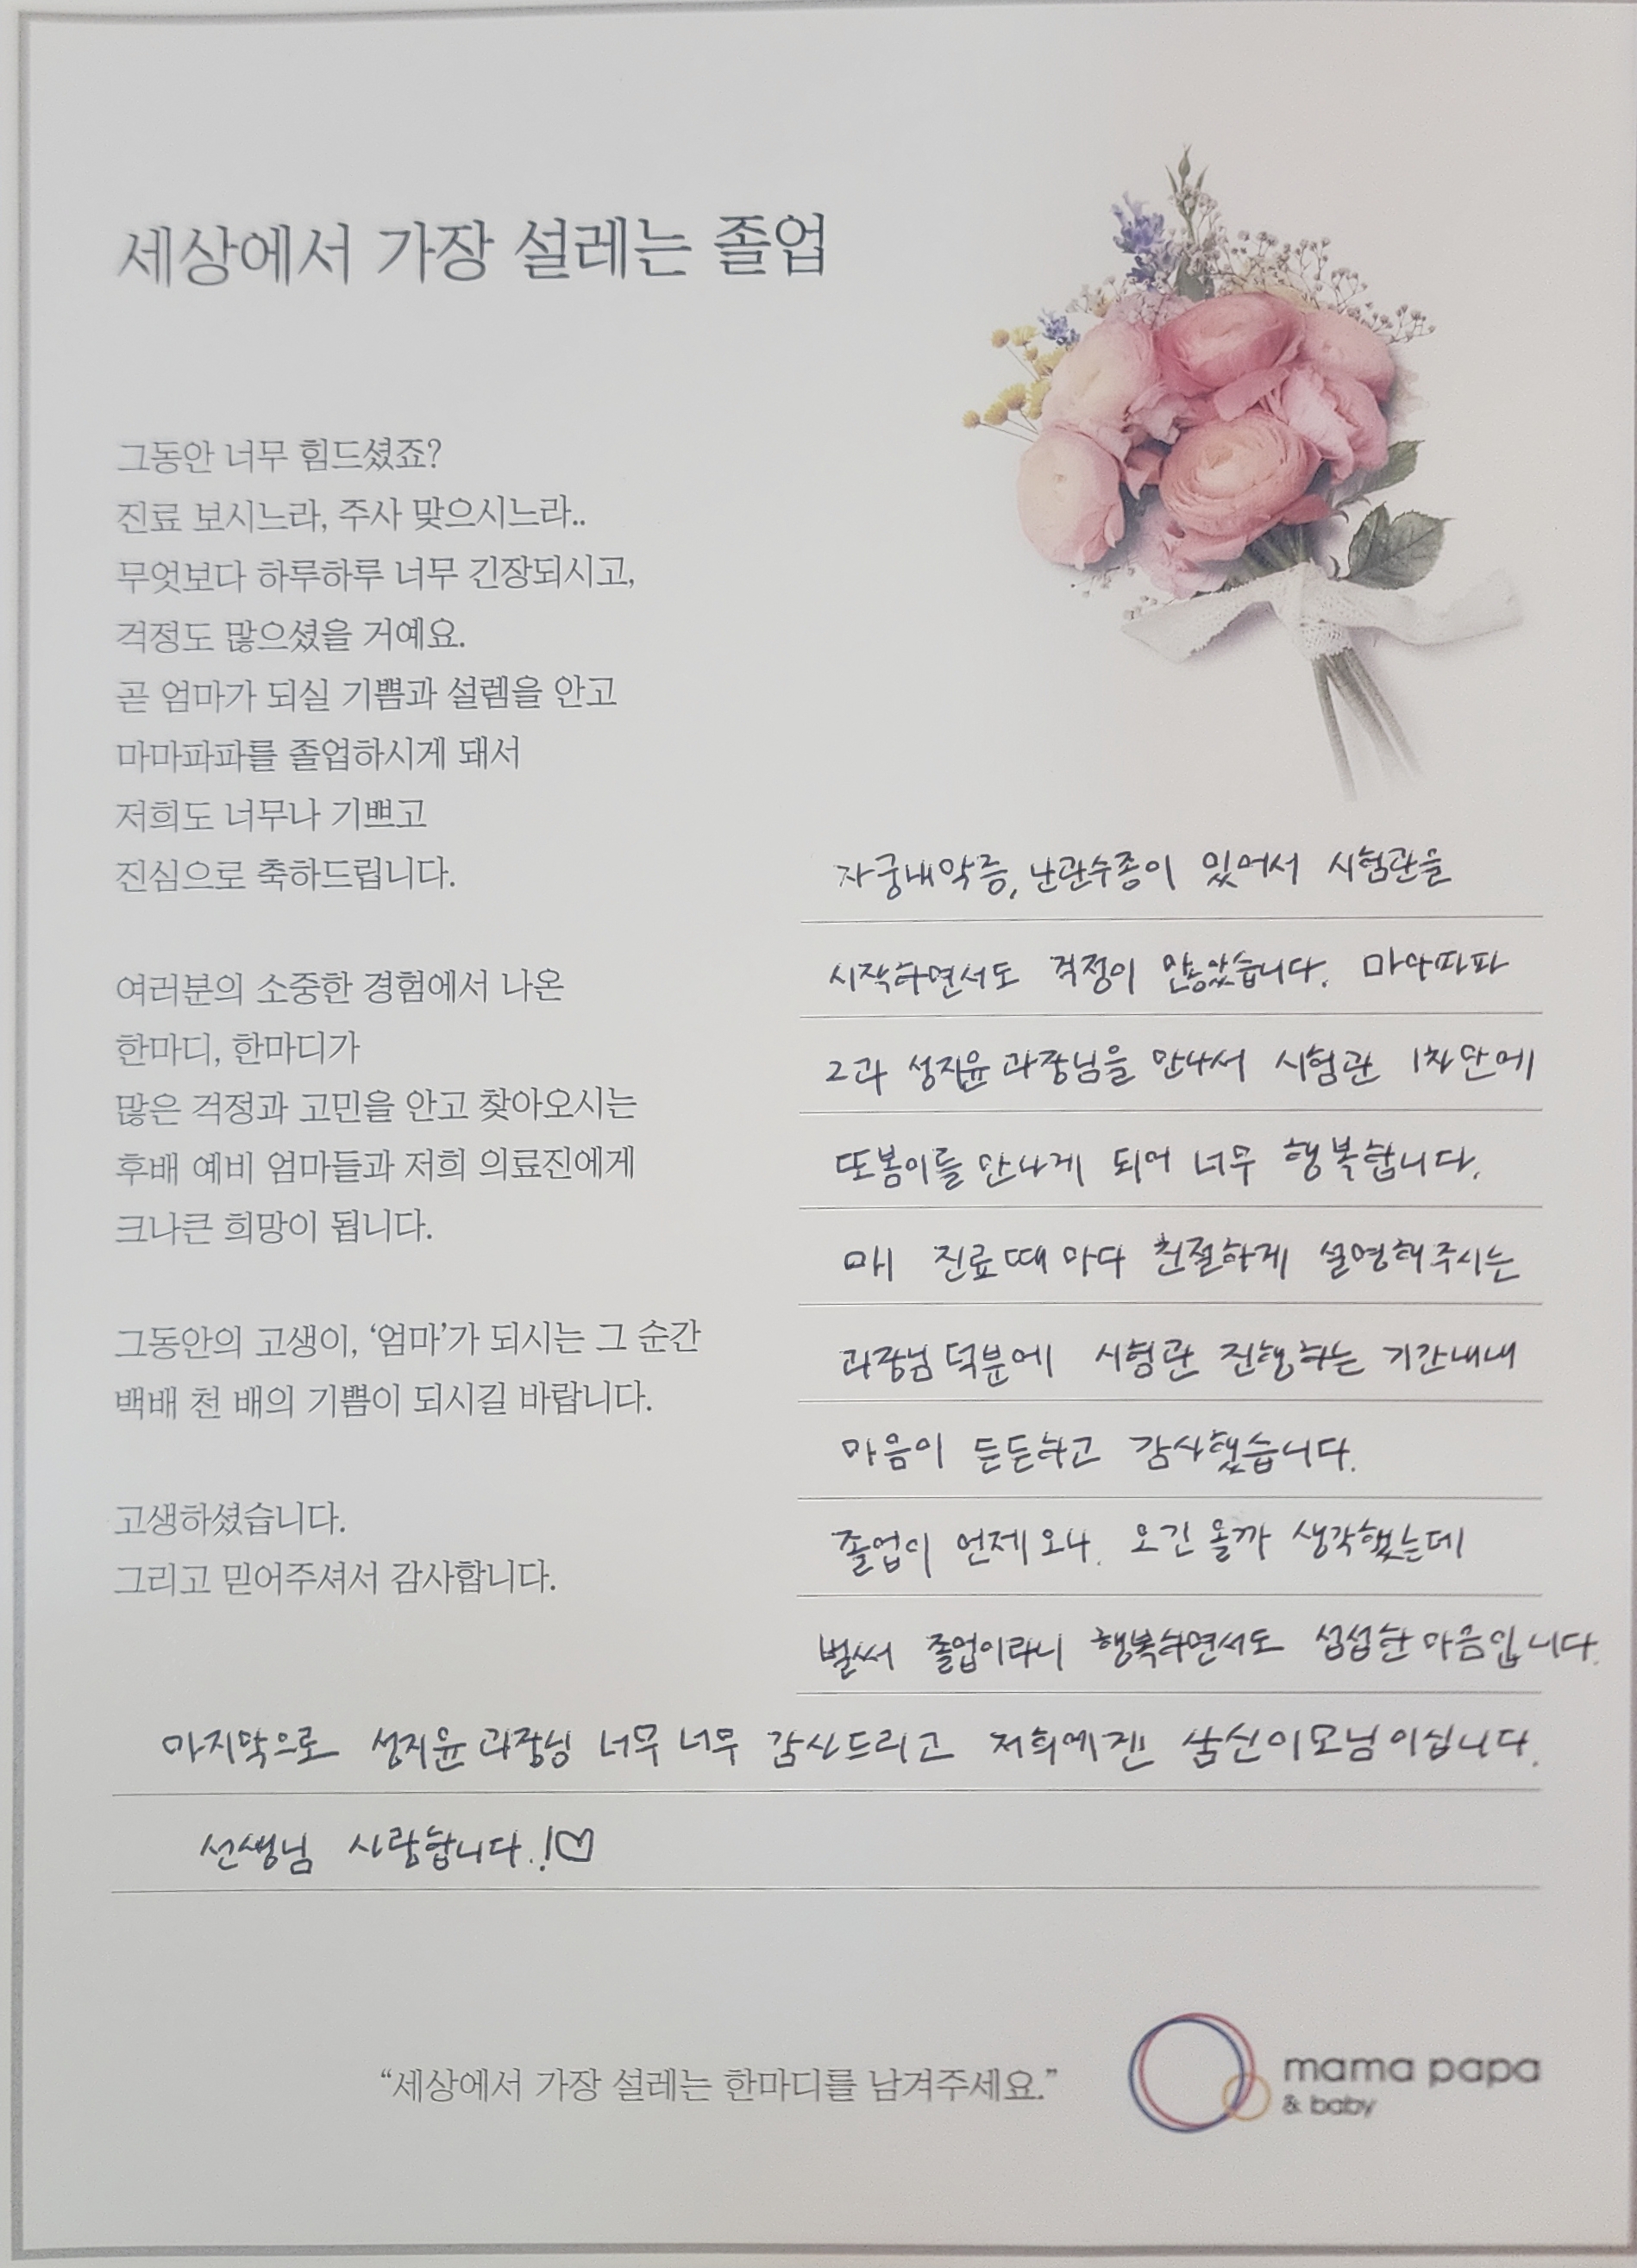 세상에서 가장 설레는 졸업
그동안 너무 힘드셨죠?
진료 보시느라, 주사 맞으시느라..
무엇보다 하루하루 너무 긴장되시고,
걱정도 많으셨을 거예요.
곧 엄마가 되실 기쁨과 설렘을 안고
마마파파를 졸업하시게 돼서
저희도 너무나 기쁘고
진심으로 축하드립니다.
여러분의 소중한 경험에서 나온
한마디, 한마디가
많은 걱정과 고민을 안고 찾아오시는
후배 예비 엄마들과 저희 의료진에게
크나큰 희망이 됩니다.
그동안의 고생이, ‘엄마’가 되시는 그 순간
백배 천 배의 기쁨이 되시길 바랍니다.
고생하셨습니다.
그리고 믿어주셔서 감사합니다.
자궁내막증, 난관수종이 있어서 시험관을
시작하면서도 걱정이 많았습니다. 마마파파
2과 성지윤 과장님을 만나서 시험관 1차만에
또봄이를 만나게 되어 너무 행복합니다.
매 진료때 마다 친절하게 설명해주시는
과장님 덕분에 시험관 진행하는 기간내내
마음이 든든하고 감사했습니다.
졸업이 언제오나. 오긴 올까 생각했는데
벌써 졸업이라니 행복하면서도 섭섭한 마음입니다.
마지막으로 성지윤 과장님 너무 너무 감사드리고 저희에겐 삼신이모님이십니다.
선생님 사랑합니다.!♡
“세상에서 가장 설레는 한마디를 남겨주세요.”
mama papa
& baby